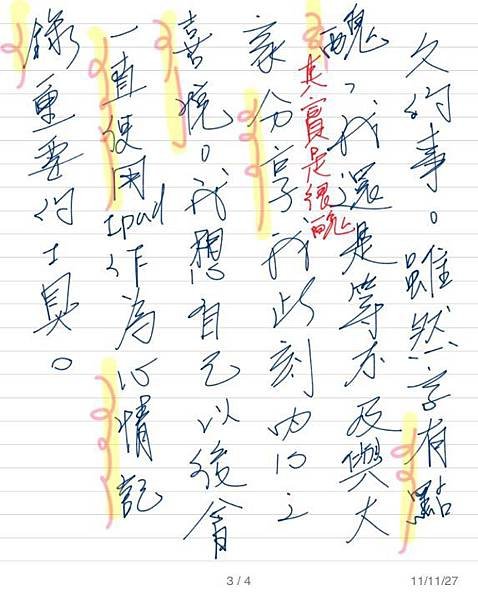 久的事。雖然字有點
醜，我還是等不及與大
其實是很醜
家分享我此刻內心之
喜悅。我想自己以後會
一直使用Ipad作為心情記
錄重要的工具。
3 / 4
11/11/27